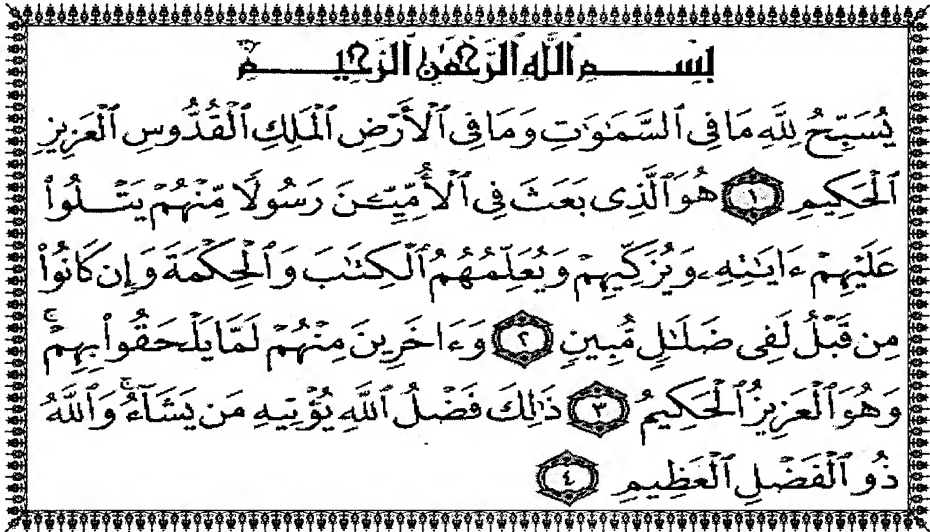 بِسْمِ ٱللَّهِ ٱلرَّحْمَٰنِ ٱلرَّحِيمِ
يُسَبِّحُ لِلَّهِ مَا فِى ٱلسَّمَٰوَٰتِ وَمَا فِى ٱلْأَرْضِ ٱلْمَلِكِ ٱلْقُدُّوسِ ٱلْعَزِيزِ
ٱلْحَكِيمِ ١ هُوَ ٱلَّذِى بَعَثَ فِى ٱلْأُمِّيِّـۧنَ رَسُولًا مِّنْهُمْ يَتْلُوا۟
عَلَيْهِمْ ءَايَٰتِهِۦ وَيُزَكِّيهِمْ وَيُعَلِّمُهُمُ ٱلْكِتَٰبَ وَٱلْحِكْمَةَ وَإِن كَانُوا۟
مِن قَبْلُ لَفِى ضَلَٰلٍ مُّبِينٍ ٢ وَءَاخَرِينَ مِنْهُمْ لَمَّا يَلْحَقُوا۟ بِهِمْ ۚ
وَهُوَ ٱلْعَزِيزُ ٱلْحَكِيمُ ٣ ذَٰلِكَ فَضْلُ ٱللَّهِ يُؤْتِيهِ مَن يَشَآءُ ۚ وَٱللَّهُ
ذُو ٱلْفَضْلِ ٱلْعَظِيمِ ٤